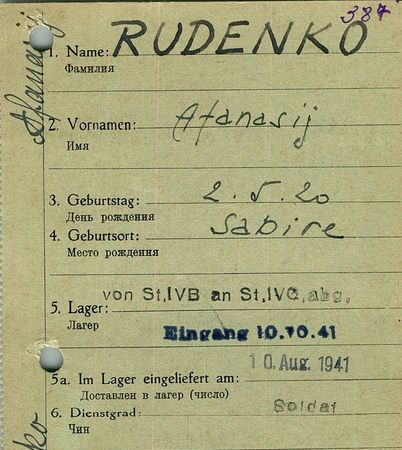 387
1. Name: RUDENKO
Фамилия
Afanasij
2. Vornamen: Afanasij
Имя
3. Geburtstag: 2.5.20
День рождения
4. Geburtsort: Sabire
Место рождения
von St,IVB an St,IVC,abg,
5. Lager:
Лагер
Eingang 10.10.41
10. Aug. 1941
5a. Im Lager eingeliefert am:
Доставлен в лагер (число)
6. Dienstgrad: Soldat
Чин
ko